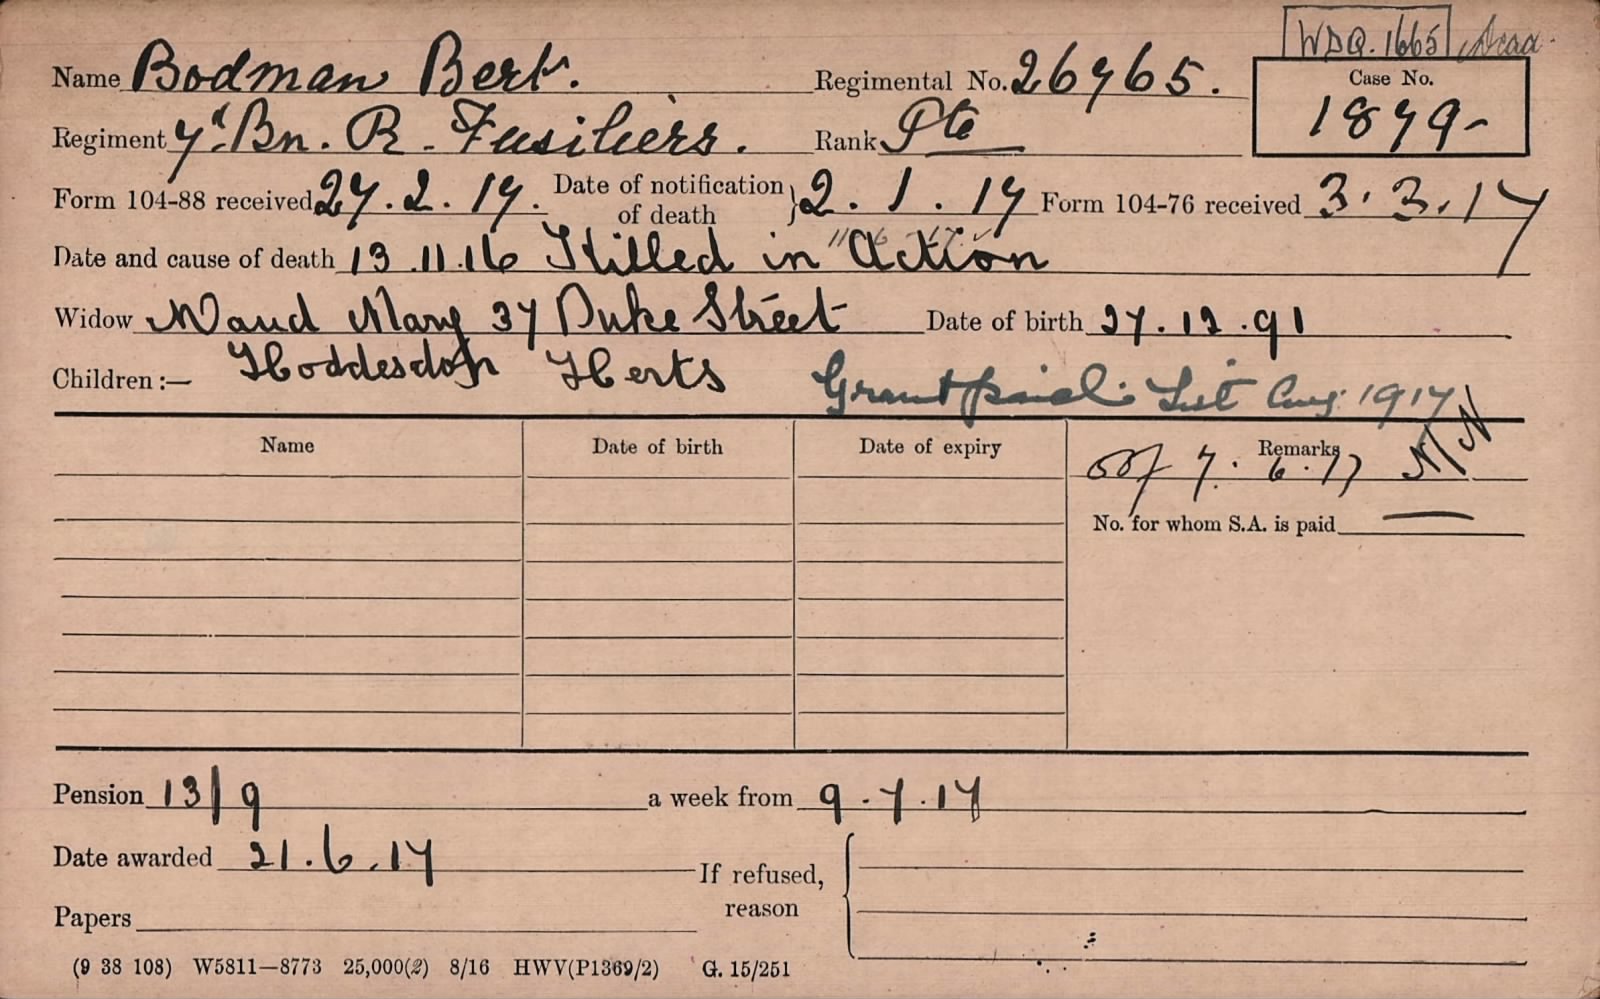 WDQ. 1665 Dead
Name Bodman Bert. Regimental No. 26765. Case No.
1879-
Regiment 7th Bn. R. Fusiliers. Rank Pte
Form 104-88 received 27.2.17. Date of notification of death } 2.1.17 Form 104-76 received 3.3.17
Date and cause of death 13.11.16 Killed in Action
Widow Maud Mary 37 Duke Street Date of birth 27.12.91
Children :— Hoddesdon Herts Grant paid List Aug 1917
Name Date of birth Date of expiry Remarks
7.6.17
No. for whom S.A. is paid —
Pension 13/9 a week from 9.7.17
Date awarded 21.6.17
If refused, reason
Papers
(9 38 108) W5811—8773 25,000(2) 8/16 HWV(P1369/2) G. 15/251